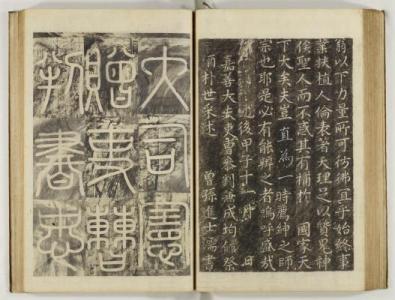 翁以下力量所可彷佛宜乎始終事
業扶植人倫表著天理足以質鬼神
俟聖人而不惑其有補於 國家天
下大矣夫豈直爲一時薦紳之師
宗也耶是必有能辨之者嗚呼盛哉
後甲子十一月 日
嘉善大夫吏曹參判兼成均館祭
酒朴世采述 曾孫進士濡書
大司憲
贈吏曹
判書